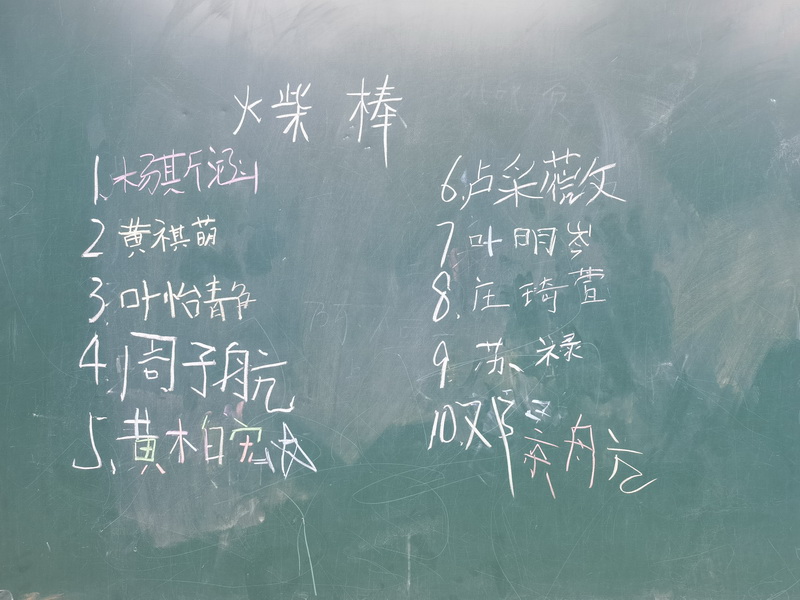 火柴棒
1.杨斯涵
2黄祺萌
3.叶怡静
4.周子航
5.黄柏宏
6.卢采薇
7叶明岑
8.庄琦萱
9.苏禄
10.邓奕航